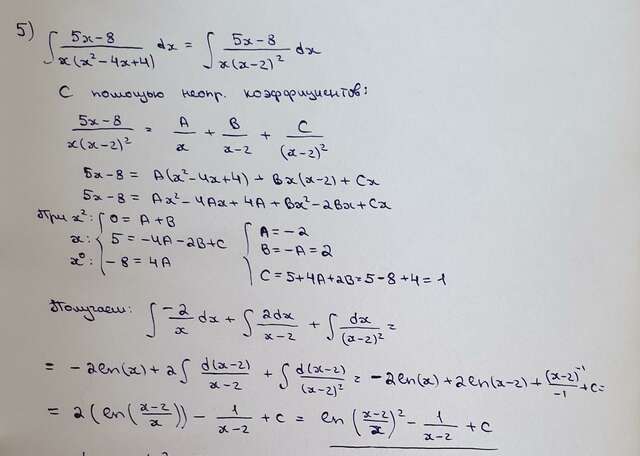 5) ∫ (5x-8)/(x(x²-4x+4)) dx = ∫ (5x-8)/(x(x-2)²) dx
С помощью неопр. коэффициентов:
(5x-8)/(x(x-2)²) = A/x + B/(x-2) + C/(x-2)²
5x-8 = A(x²-4x+4) + Bx(x-2) + Cx
5x-8 = Ax²-4Ax+4A+Bx²-2Bx+Cx
При x²: { 0 = A+B { A = -2
x: 5 = -4A-2B+C B = -A = 2
x⁰: -8 = 4A C = 5+4A+2B = 5-8+4 = 1
Получаем: ∫ -2/x dx + ∫ 2dx/(x-2) + ∫ dx/(x-2)² =
= -2ln(x) + 2∫ d(x-2)/(x-2) + ∫ d(x-2)/(x-2)² = -2ln(x) + 2ln(x-2) + (x-2)⁻¹/-1 + C =
= 2(ln((x-2)/x)) - 1/(x-2) + C = ln((x-2)/x)² - 1/(x-2) + C